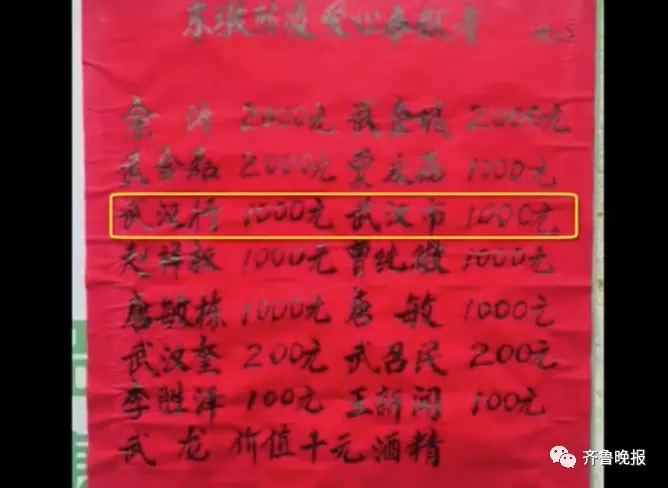 爱心奉献者
2000元 武金城 2000元
武金磊 2000元 1000元
武汉行 1000元 武汉市 1000元
赵祥敏 1000元 曹纯俊 1000元
唐敏栋 1000元 唐敏 1000元
武汉奎 200元 武吕民 200元
李胜泽 100元 王新闻 100元
武龙 价值千元酒精
齐鲁晚报